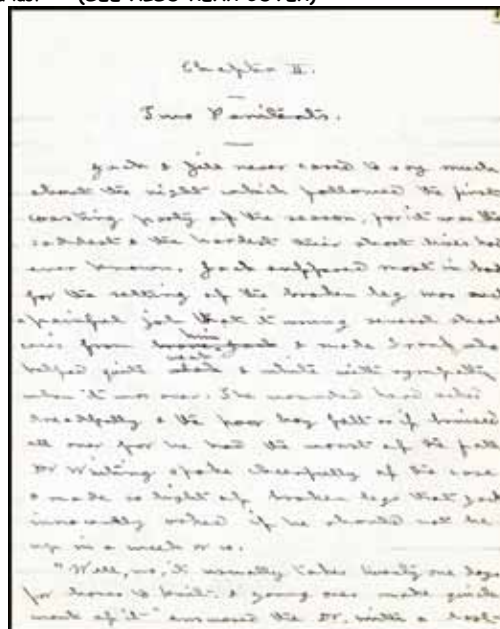 (SEE ALSO REAR COVER)
Chapter II.
Two Penitents.
Jack & Jill never cared to say much
about the night which followed the first
coasting party of the season, for it was the
hardest & the saddest their short lives had
ever known. Jack suffered most in body
for the setting of the broken leg was such
a painful job that it wrung several sharp
cries from him & made Frank who
helped quite weak & white with sympathy
when it was over. The wounded head ached
dreadfully & the poor boy felt as if bruised
all over for he had the worst of the fall
Dr Whiting spoke cheerfully of the case
& made so light of broken legs that Jack
innocently asked if he should not be
up in a week or so.
"Well, no, it usually takes twenty one days
for bones to knit & young ones make quick
work of it" answered the Dr. with a last